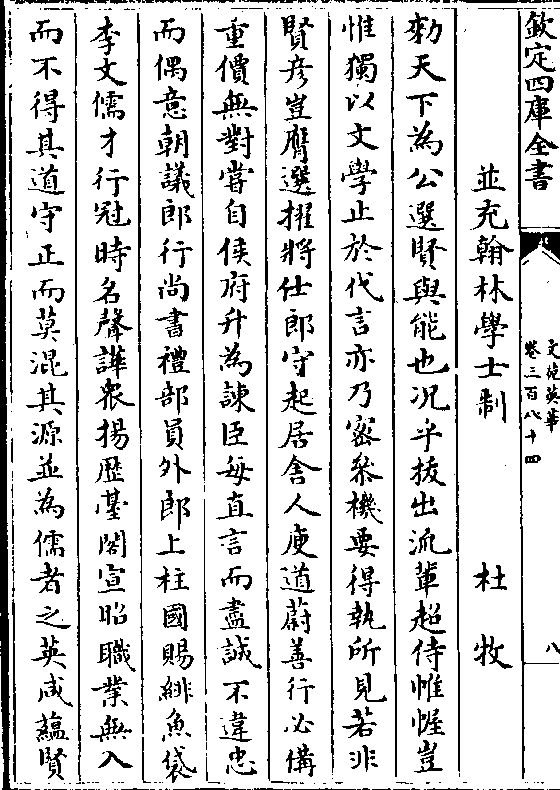 欽定四庫全書
文苑英華
卷三百八十四
八
並充翰林學士制
杜牧
勑天下為公選賢與能也況乎拔出流輩超侍帷幄豈
惟獨以文學止於代言亦乃密叅機要得執所見若非
賢彥豈膺選擢將仕郎守起居舍人庾道蔚善行必備
重價無對嘗自侯府升為諫臣每直言而盡誠不違忠
而偶意朝議郎行尚書禮部員外郎上柱國賜緋魚袋
李文儒才行冠時名聲譁衆揚歷臺閣宣昭職業無入
而不得其道守正而莫混其源並為儒者之英咸蘊賢